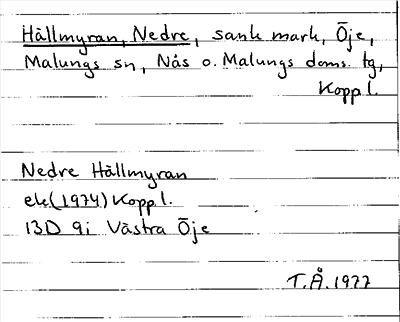 Hällmyran, Nedre, sank mark, Öje,
Malungs sn, Nås o. Malungs doms. tg,
Kopp l.
Nedre Hällmyran
ek (1974) Kopp l.
13D 9i Västra Öje
T.Å. 1977